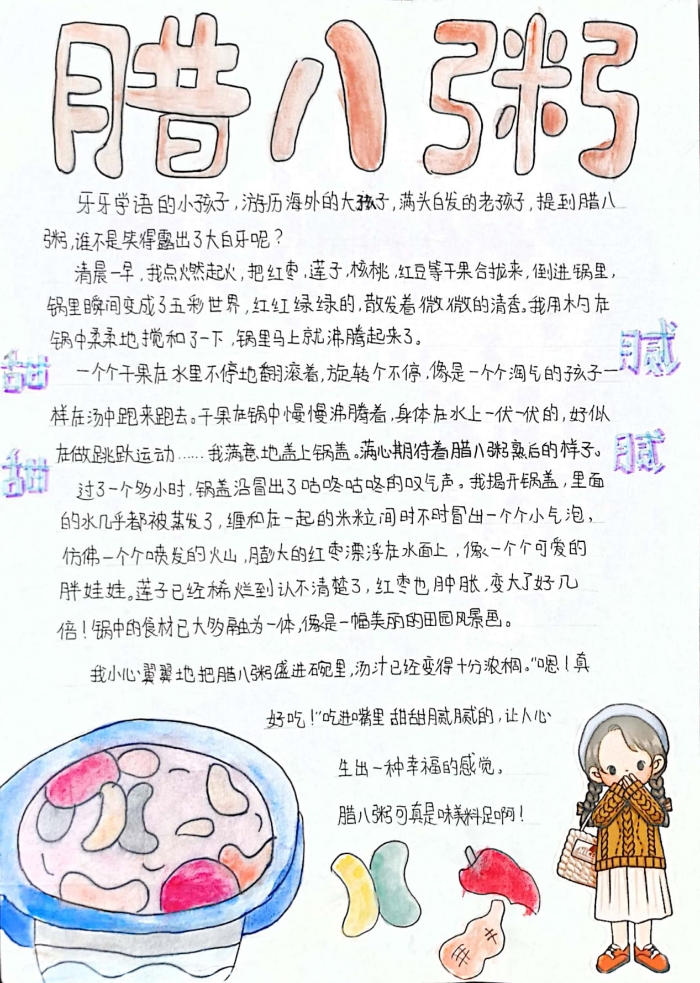 腊八粥
牙牙学语的小孩子，游历海外的大孩子，满头白发的老孩子，提到腊八
粥，谁不是笑得露出了大白牙呢？
清晨一早，我点燃起火，把红枣，莲子，核桃，红豆等干果合拢来，倒进锅里，
锅里瞬间变成了五彩世界，红红绿绿的，散发着微微的清香。我用木勺在
锅中柔柔地搅和了一下，锅里马上就沸腾起来了。
一个个干果在水里不停地翻滚着，旋转个不停，像是一个个淘气的孩子一
样在汤中跑来跑去。干果在锅中慢慢沸腾着，身体在水上一伏一伏的，好似
在做跳跃运动……我满意地盖上锅盖。满心期待着腊八粥熟后的样子。
过了一个多小时，锅盖沿冒出了咕咚咕咚的叹气声。我揭开锅盖，里面
的水几乎都被蒸发了，缠和在一起的米粒间时不时冒出一个个小气泡，
仿佛一个个喷发的火山，膨大的红枣漂浮在水面上，像一个个可爱的
胖娃娃。莲子已经稀烂到认不清楚了，红枣也肿胀，变大了好几
倍！锅中的食材已大多融为一体，像是一幅美丽的田园风景画。
我小心翼翼地把腊八粥盛进碗里，汤汁已经变得十分浓稠。“嗯！真
好吃！”吃进嘴里甜甜腻腻的，让人心
生出一种幸福的感觉。
腊八粥可真是味美料足啊！
甜
甜
腻
腻